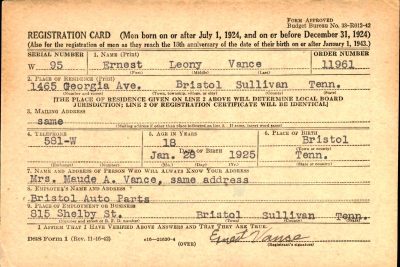 FORM APPROVED
Budget Bureau No. 33-R012-42
REGISTRATION CARD (Men born on or after July 1, 1924, and on or before December 31, 1924)
(Also for the registration of men as they reach the 18th anniversary of the date of their birth on or after January 1, 1943.)
SERIAL NUMBER 1. NAME (Print) ORDER NUMBER
W 95 Ernest Leony Vance 11961
(First) (Middle) (Last)
2. PLACE OF RESIDENCE (Print)
1465 Georgia Ave. Bristol Sullivan Tenn.
(Number and street) (Town, township, village, or city) (County) (State)
[THE PLACE OF RESIDENCE GIVEN ON LINE 2 ABOVE WILL DETERMINE LOCAL BOARD
JURISDICTION; LINE 2 OF REGISTRATION CERTIFICATE WILL BE IDENTICAL]
3. MAILING ADDRESS
same
[Mailing address if other than place indicated on line 2. If same, insert word same]
4. TELEPHONE 5. AGE IN YEARS 6. PLACE OF BIRTH
581-W 18 Bristol
DATE OF BIRTH (Town or county)
Jan. 28 1925 Tenn.
(Exchange) (Number) (Mo.) (Day) (Yr.) (State or country)
7. NAME AND ADDRESS OF PERSON WHO WILL ALWAYS KNOW YOUR ADDRESS
Mrs. Maude A. Vance, same address
8. EMPLOYER'S NAME AND ADDRESS
Bristol Auto Parts
9. PLACE OF EMPLOYMENT OR BUSINESS
815 Shelby St. Bristol Sullivan Tenn.
(Number and street or R. F. D. number) (Town) (County) (State)
I AFFIRM THAT I HAVE VERIFIED ABOVE ANSWERS AND THAT THEY ARE TRUE.
DSS Form 1 (Rev. 11-16-42) (OVER) Ernest Vance
(Registrant's signature)